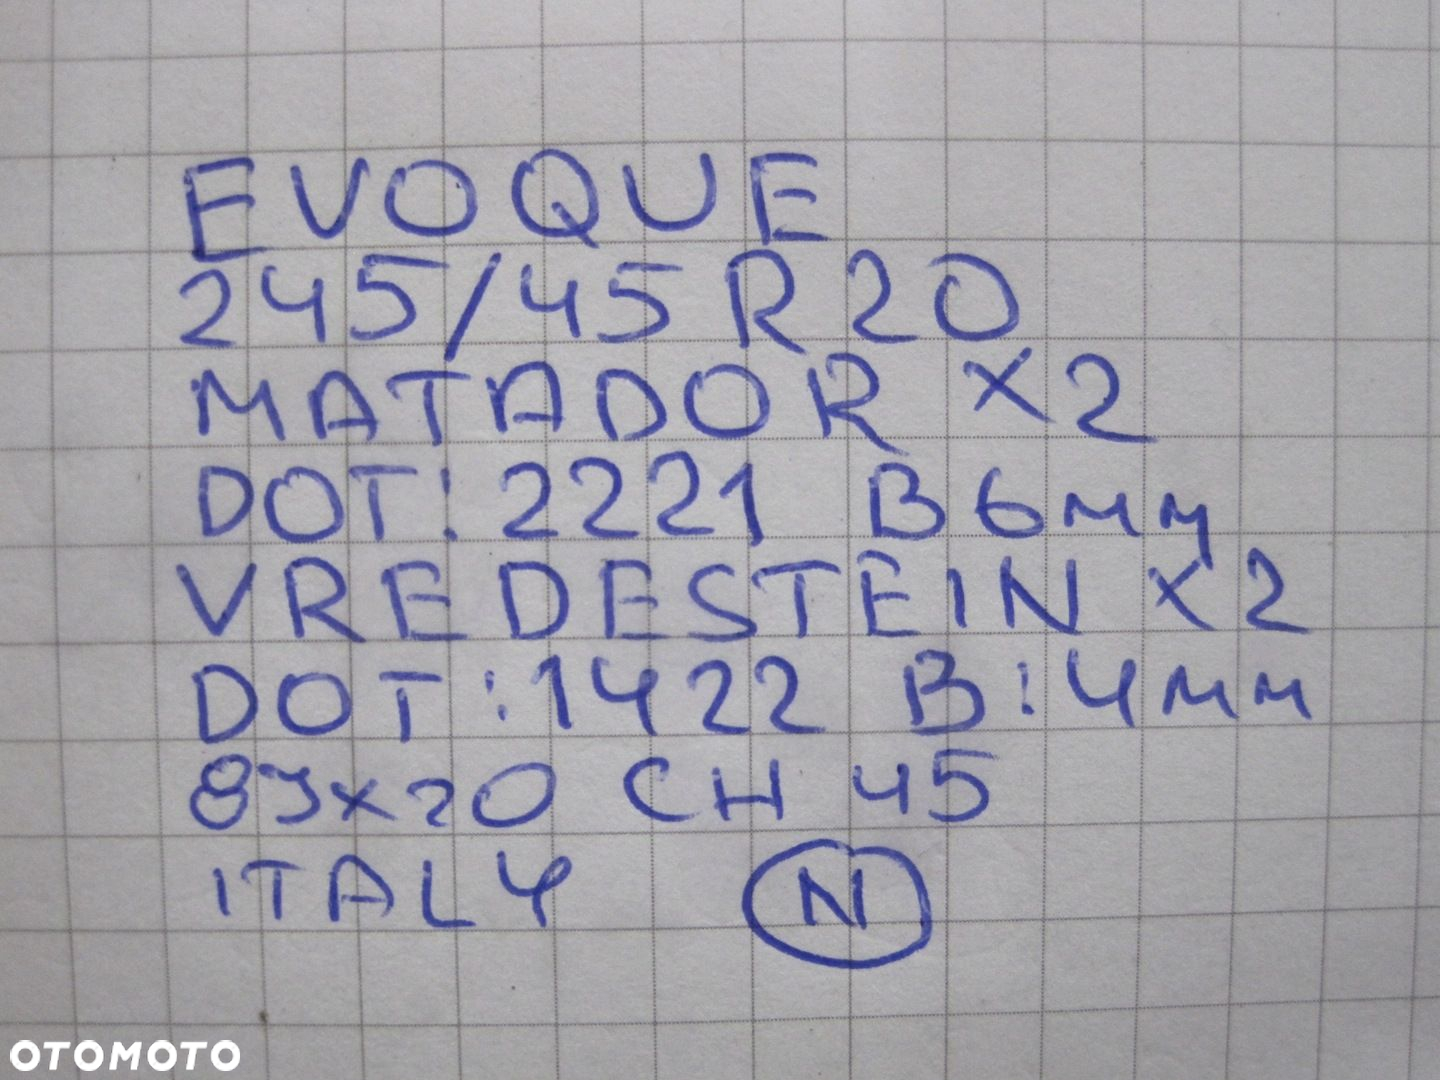 EVOQUE
245/45 R20
MATADOR X2
DOT: 2221 B 6mm
VREDESTEIN X2
DOT: 1422 B: 4mm
8Jx20 CH 45
ITALY N
OTOMOTO